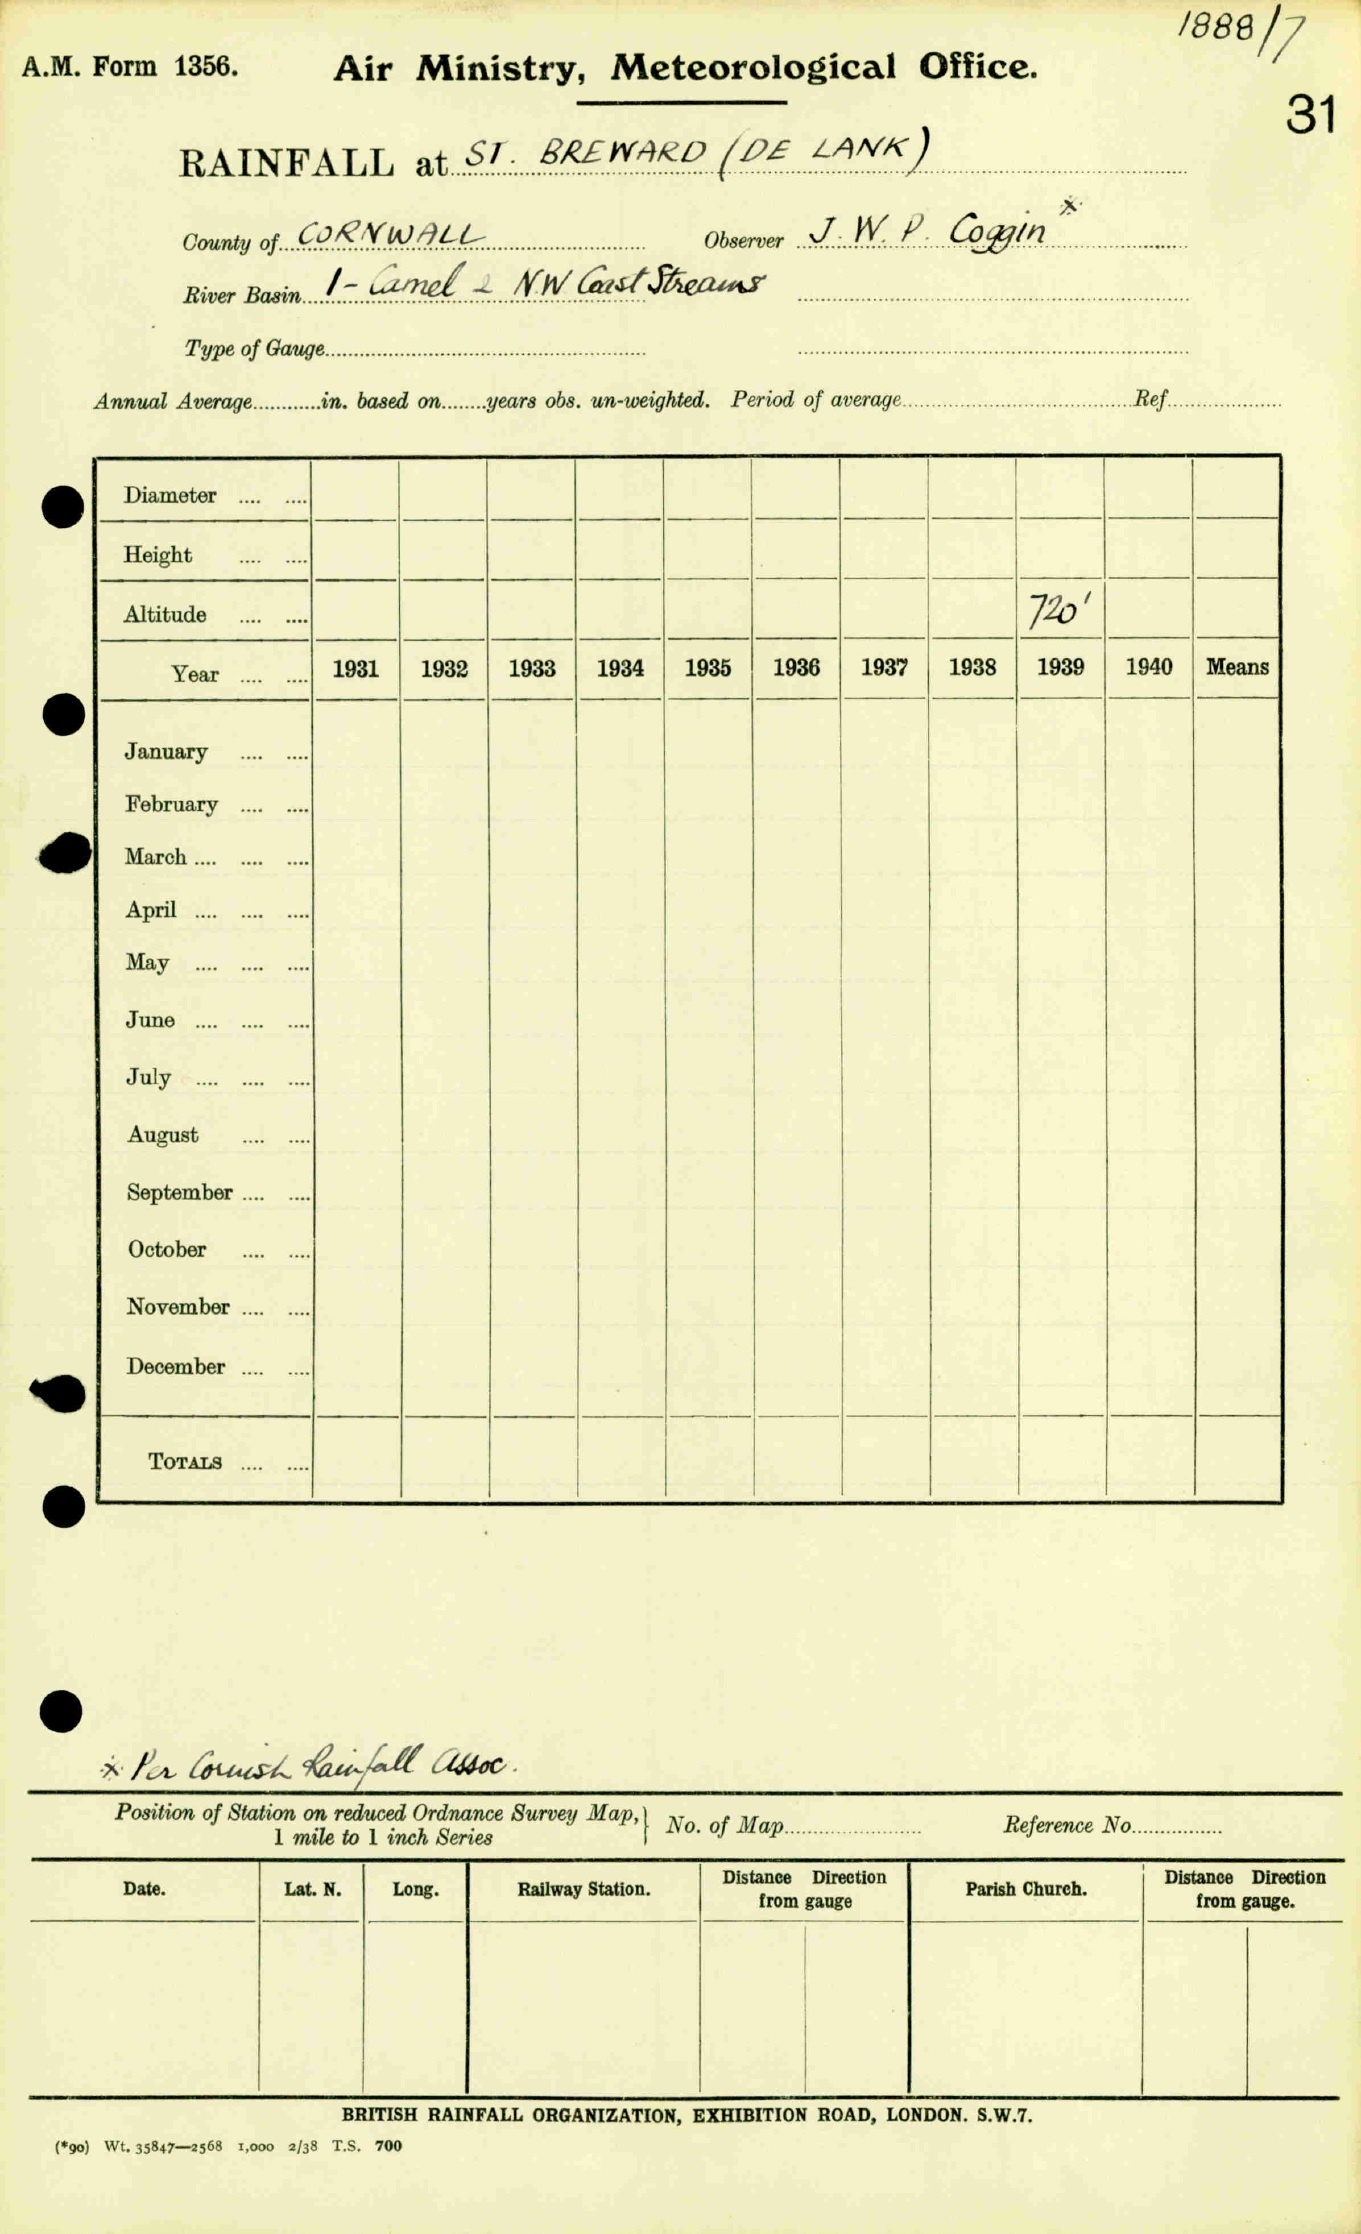 1888/7
A.M. Form 1356. Air Ministry, Meteorological Office.
31
RAINFALL at ST. BREWARD (DE LANK)
County of CORNWALL Observer J. W. P. Coggin *
River Basin 1 - Camel & N.W Coast Streams
Type of Gauge
Annual Average in. based on years obs. un-weighted. Period of average Ref.
Diameter
Height
Altitude 720'
Year 1931 1932 1933 1934 1935 1936 1937 1938 1939 1940 Means
January
February
March
April
May
June
July
August
September
October
November
December
TOTALS
* Per Cornish Rainfall Assoc.
Position of Station on reduced Ordnance Survey Map, } No. of Map Reference No.
1 mile to 1 inch Series
Date. Lat. N. Long. Railway Station. Distance Direction Parish Church. Distance Direction
from gauge from gauge.
BRITISH RAINFALL ORGANIZATION, EXHIBITION ROAD, LONDON. S.W.7.
(*90) Wt. 35847—2568 1,000 2/38 T.S. 700